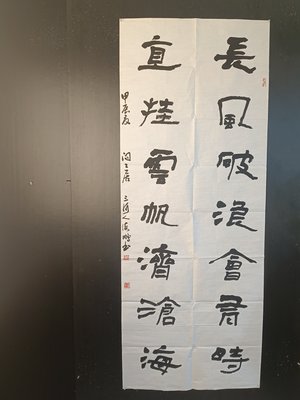 長風破浪會有時
直挂雲帆濟滄海
甲辰夏